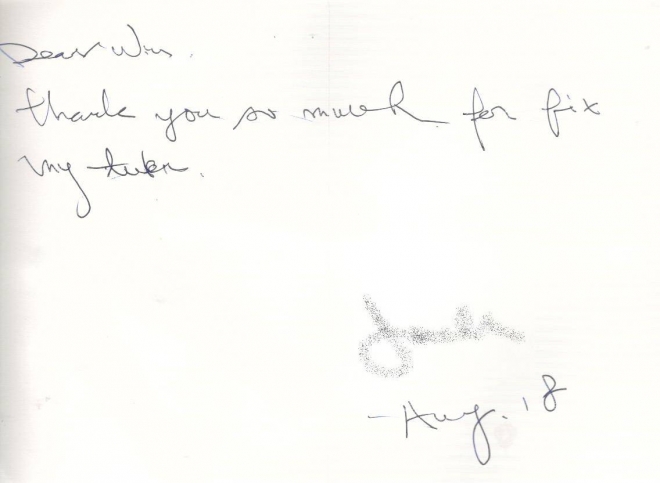 Dear Win.
thank you so much for fix
my
- Aug. 18